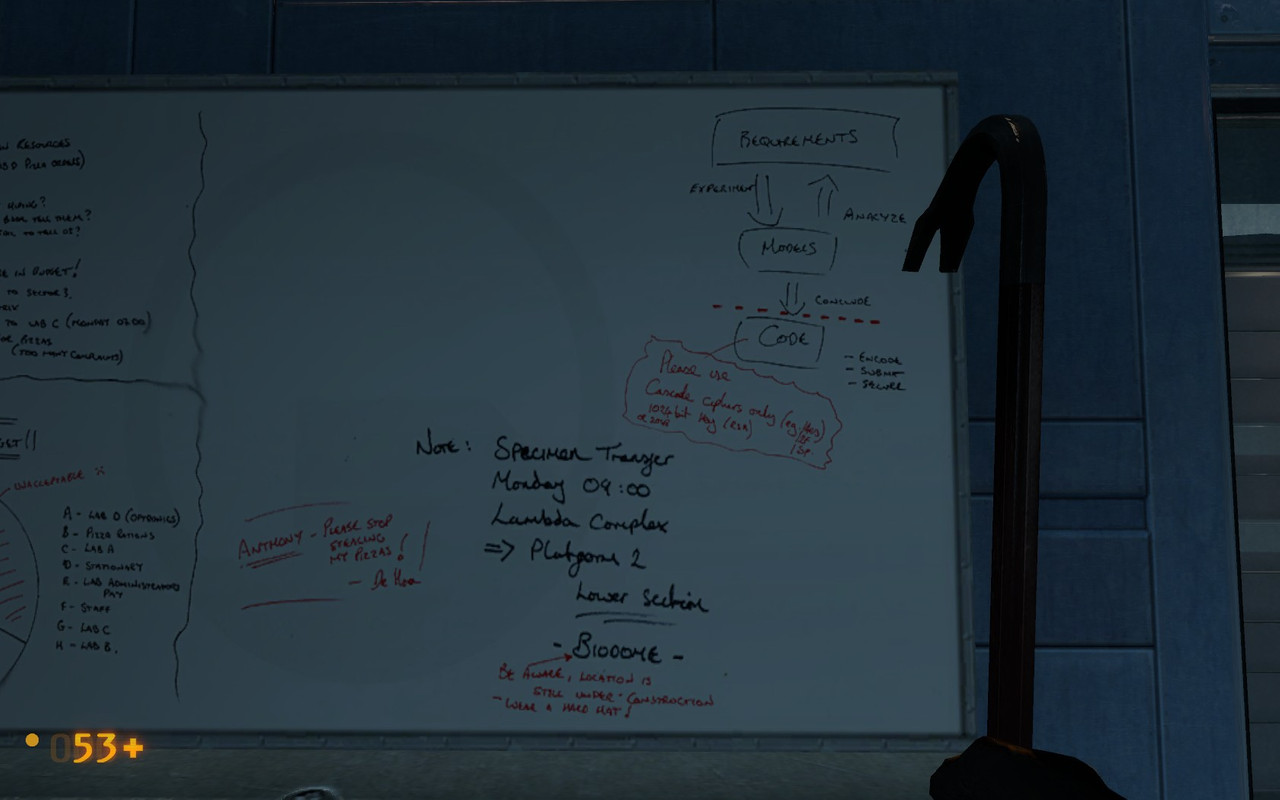 RESOURCES
PIZZA ORDERS)
HIRING?
TELL THEM?
TO TELL US?
IN BUDGET!
TO SECTOR 3.
TO LAB C (MONDAY 03:00)
PIZZAS
(TOO MANY COMPLAINTS)
UNACCEPTABLE
A - LAB D (OPTRONICS)
B - PIZZA RATIONS
C - LAB A
D - STATIONERY
E - LAB ADMINISTRATORS
PAY
F - STAFF
G - LAB C
H - LAB B.
ANTHONY - PLEASE STOP
STEALING
MY PIZZAS!
REQUIREMENTS
EXPERIMENT
ANALYZE
MODELS
CONCLUDE
CODE
- ENCODE
- SUBMIT
- SECURE
Please use
Cascade ciphers only
1024 bit key (RSA)
Note: Specimen Transfer
Monday 09:00
Lambda Complex
=> Platform 2
Lower Section
- BIODOME -
BE AWARE, LOCATION IS
STILL UNDER-CONSTRUCTION
- WEAR A HARD HAT!
053+